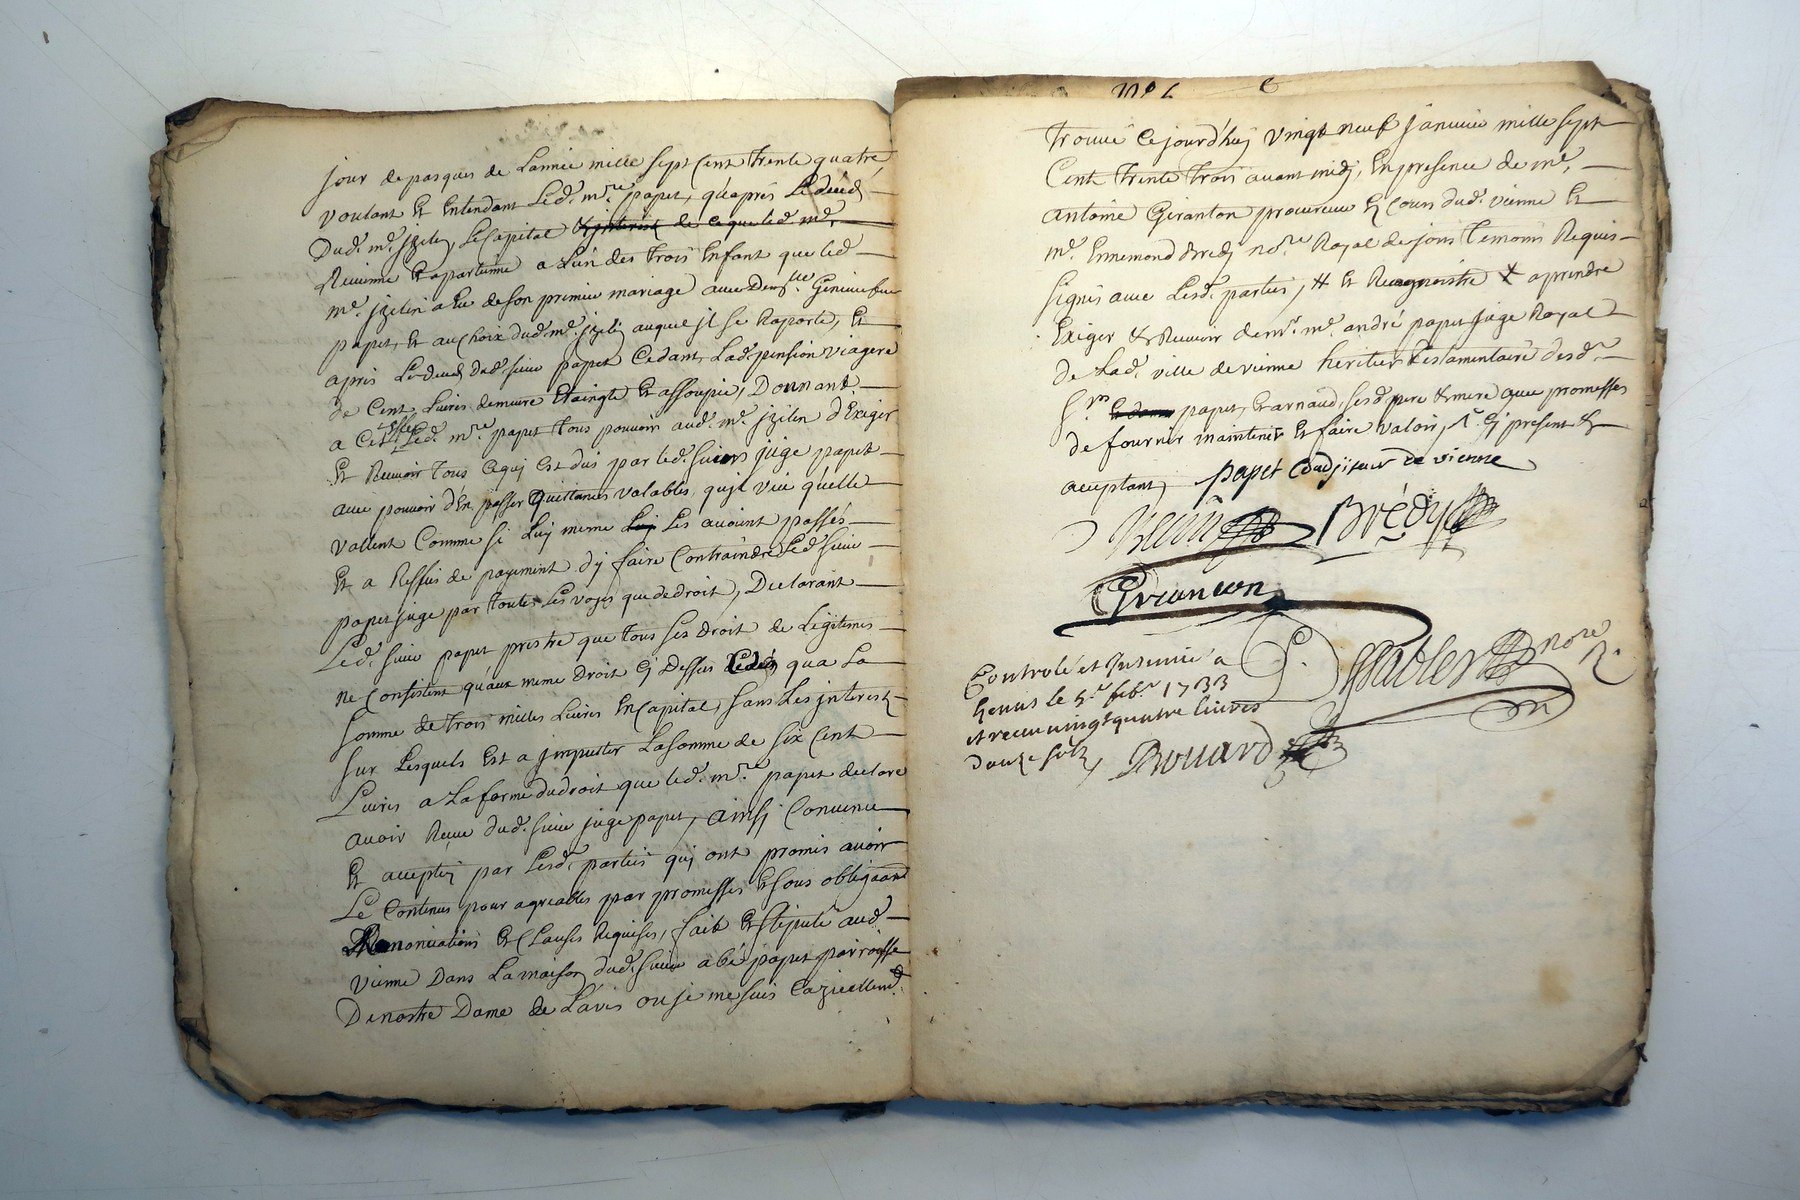 jour de pasques de Lannée mille sept Cent trente quatre
voulant Et Entendant Led. m.re papet, qu'aprés Le deced
Dud. m.e jzelin, Le Capital & jnterest de ce que led. m.e
Revienne Et apartienne a L'un des trois Enfant que led
m.e jzelin a Eu de son premier mariage avec Dem.lle Geneviefve
papet, Et au Choix dud. m.e jzelin auquel jl se Raporte, Et
aprés Le deced dud. sieur papet Cedant, Lad. pension viagere
de Cent Livres demeure Etaingte Et assoupie, Donnant
a Cet Effet Led. m.re papet tous pouvoir aud. m.e jzelin d'Exiger
Et Recevoir tous ce qui Est dus par led. sieur juge papet
avec pouvoir d'En passer Quittances valables, qu'jl veut quelle
vallent Comme si Luy meme Luy Les avoient passés
Et a Reffus de payement d'y faire Contraindre Led. sieur
papet juge par toutes Les voyes que de droit, Declarant
Led. sieur papet prestre que tous ses droit de Legitimes
ne Consistent qu'aux meme droit Cy Dessus Cedés qu'a La
somme de trois milles Livres En Capital, sans Les jnterest
sur Lesquels Est a jmputer La somme de six Cent
Livres a La forme du droit que led. m.re papet declare
avoir Reçue dud. sieur juge papet, ainsy Convenu
Et acceptés par Lesd. parties qui ont promis avoir
Le Contenus pour agreables par promesses Et sous obligaons
Renonciations Et Clauses Requises, fait Et stipulé aud.
vienne Dans La maison dud. sieur abé papet parroisse
De nostre Dame de L'avis ou je me suis Ca
trouvé Cejourd'huy vingt neuf janvier mille sept
Cent trente trois avant midy, En presence de m.e
antoine Giranton procureur Es Cours dud. vienne Et
m.e Ennemond Bredy no.re Royal de jons temoins Requis
signés avec Lesd. parties, # Et Recognoistre X aprendre
Exiger & Recevoir de m.r m.e andré papet juge Royal
de Lad. ville de vienne heritier testamentaire desd.
s.rs papet, Et arnaud, sesd. pere & mere avec promesses
de fournir maintenir Et faire valoir, Cy present &
acceptant, papet Coadjuteur de vienne
Bredy
Giranton
no.re R.
Controlé et Insinué a
le 5.e feb.r 1733
et receu vingt quatre livres
douze sols, Bouard